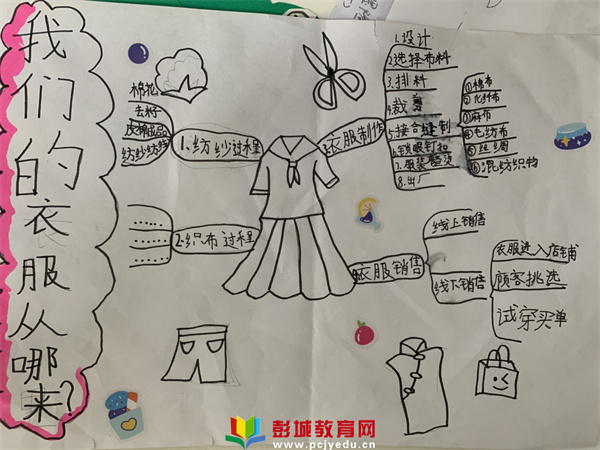 我们的衣服从哪来?
棉花
去籽
纺纱纺线
1.纺纱过程
2.织布过程
衣服制作
1.设计
2.选择布料
3.排料
4.裁剪
5.接合缝制
6.锁眼钉扣
7.服装整烫
8.出厂
①棉布
②化纤布
③麻布
④毛纺布
⑤丝绸
⑥混纺织物
衣服销售
线上销售
线下销售
衣服进入店铺
顾客挑选
试穿买单
彭城教育网
www.pcjyedu.cn